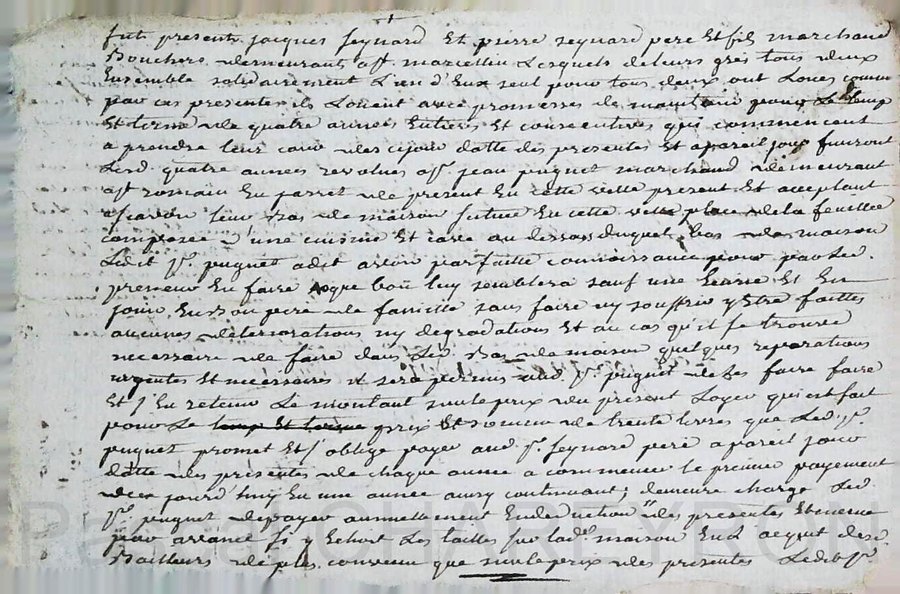 fut present jacques seynard Et pierre seynard pere Et fils marchand
Bouchers demeurant a St marcellin Lesquels de leurs gres tous deux
Ensemble solidairement L'un d'Eux seul pour tous deux ont Loués comme
par ces presentes ils Louent avec promesses de maintenir pour Le temps
Et terme de quatre années Entieres Et consecutives qui commencent
a prendre leur cour des cejour datte des presentes Et apareil jour finiront
Lesd. quatre années revolues a Sr. jean puguet marchand demeurant
a St romain En jarret de present En cette ville present Et acceptant
a scavoir leur Bas de maison scitué En cette ville place de la feuillée
composée d'une cuisine Et cave au dessous duquel bas de maison
Ledit Sr. puguet a dit avoir parfaitte connoissance pour par Led.
preneur En faire ce que bon luy semblera sauf une Et En
jouir En bon pere de famille sans faire ny souffrir y Etre faittes
aucunes deteriorations ny degradations Et au cas qu'il se trouve
necessaire de faire dans Led. Bas de maison quelques reparations
urgentes Et necessaires il sera permis aud. Sr. puguet de Les faire faire
Et d'En retenir Le montant sur le prix du present Loyer qui est fait
pour Le temps Et terme prix Et somme de trente livres que Led. Sr.
puguet promet Et s'oblige payer aud. Sr. seynard pere a pareil jour
datte des presentes de chaque année a commencer le premier payement
de ce jourd'huy En une année ainsy continuant; demeure chargé Led.
Sr. puguet de payer annuellement En deduction des presentes Et meme
par avance si y Echoit Les tailles sur lad. maison En L'acquit desd.
Bailleurs de plus convenu que sur le prix des presentes Ledit Sr.
Pascal CHARLEYRON